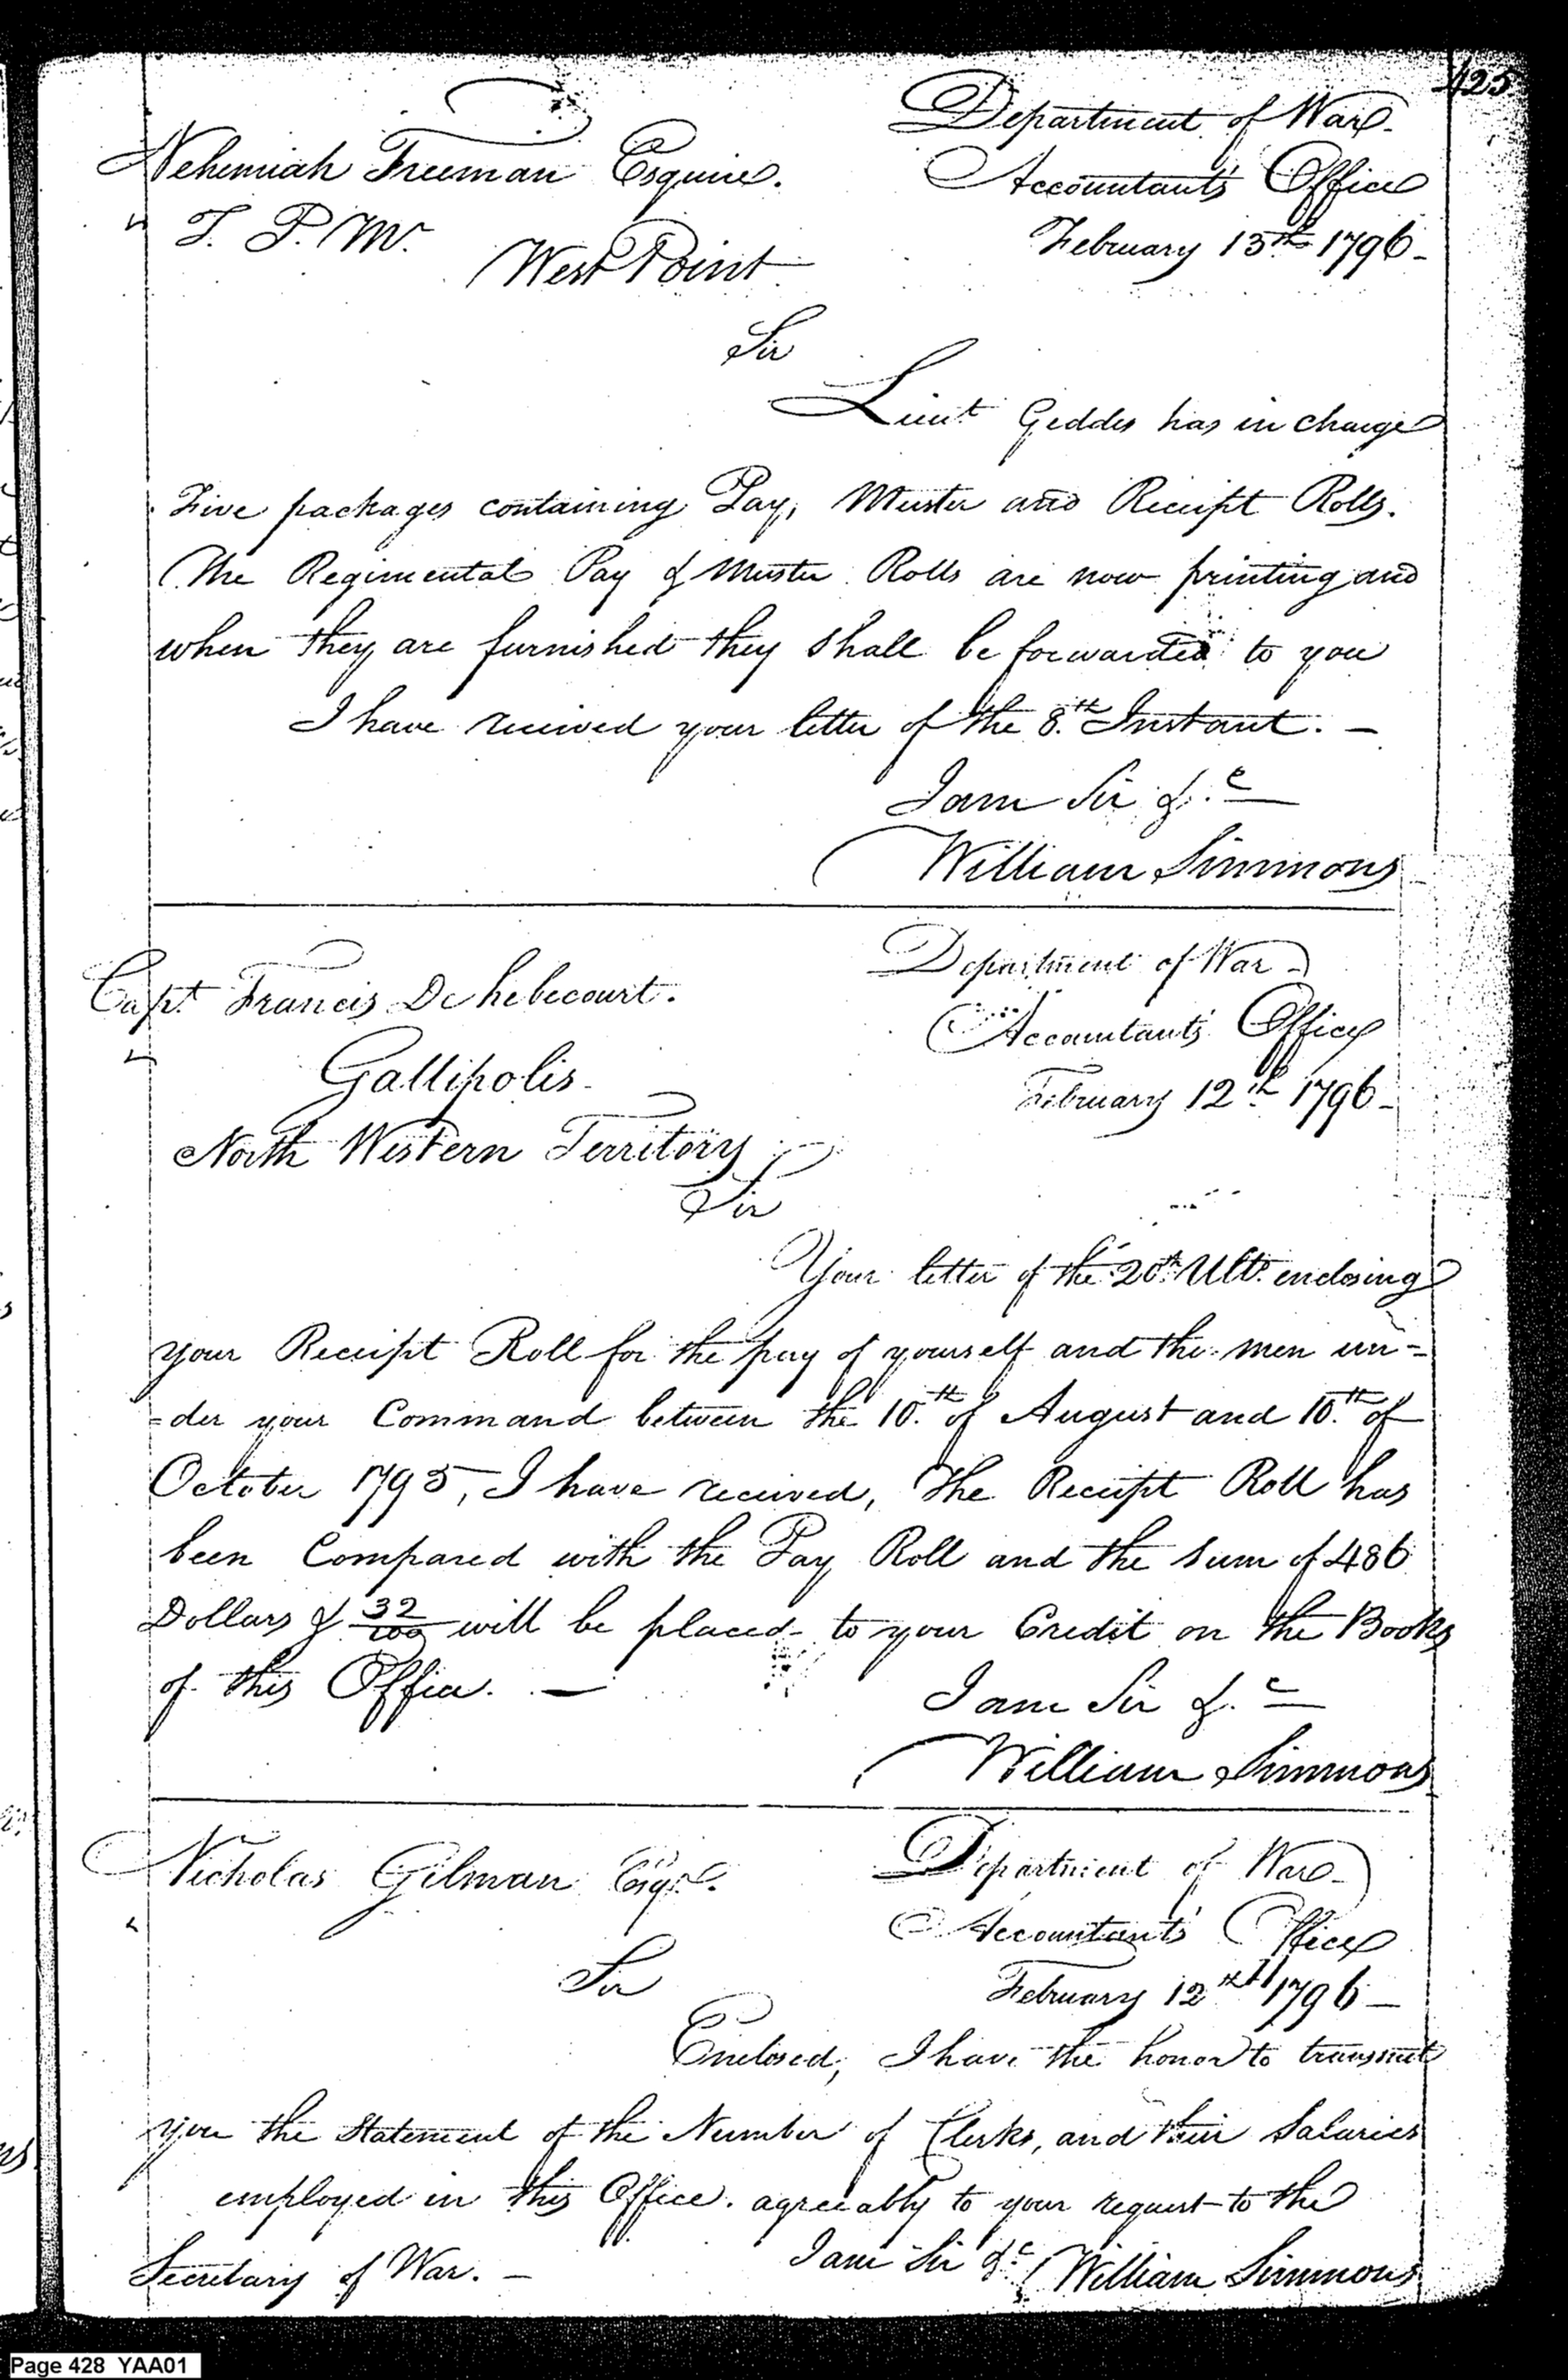 425
Department of War
Accountant's Office
February 13th 1796
Nehemiah Freeman Esquire.
T. P. M.
West Point
Sir
Lieut Geddes has in charge
Five packages containing Pay, Muster and Receipt Rolls.
The Regimental Pay & Muster Rolls are now printing and
when they are furnished they shall be forwarded to you
I have received your letter of the 8th Instant. —
I am Sir &c
William Simmons
Department of War
Accountant's Office
February 12th 1796
Capt Francis De hebecourt.
Gallipolis
North Western Territory
Sir
Your letter of the 20th Ulto. enclosing
your Receipt Roll for the pay of yourself and the men un=
=der your Command between the 10th of August and 10th of
October 1795, I have received, The Receipt Roll has
been Compared with the Pay Roll and the sum of 486
Dollars & 32/100 will be placed to your Credit on the Books
of this Office. —
I am Sir &c
William Simmons
Department of War
Accountant's Office
February 12th 1796
Nicholas Gilman Esqr.
Sir
Enclosed, I have the honor to transmit
you the Statement of the Number of Clerks, and their Salaries
employed in this Office. agreeably to your request to the
Secretary of War. —
I am Sir &c William Simmons
Page 428 YAA01